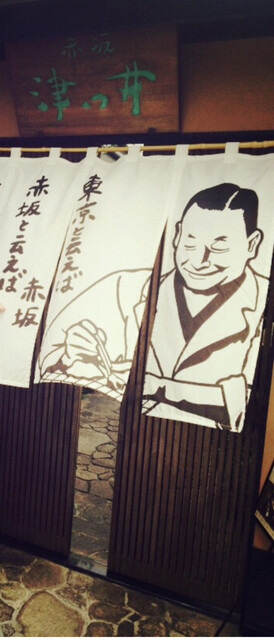 赤坂
津つ井
東京と云えば
赤坂
赤坂と云えば